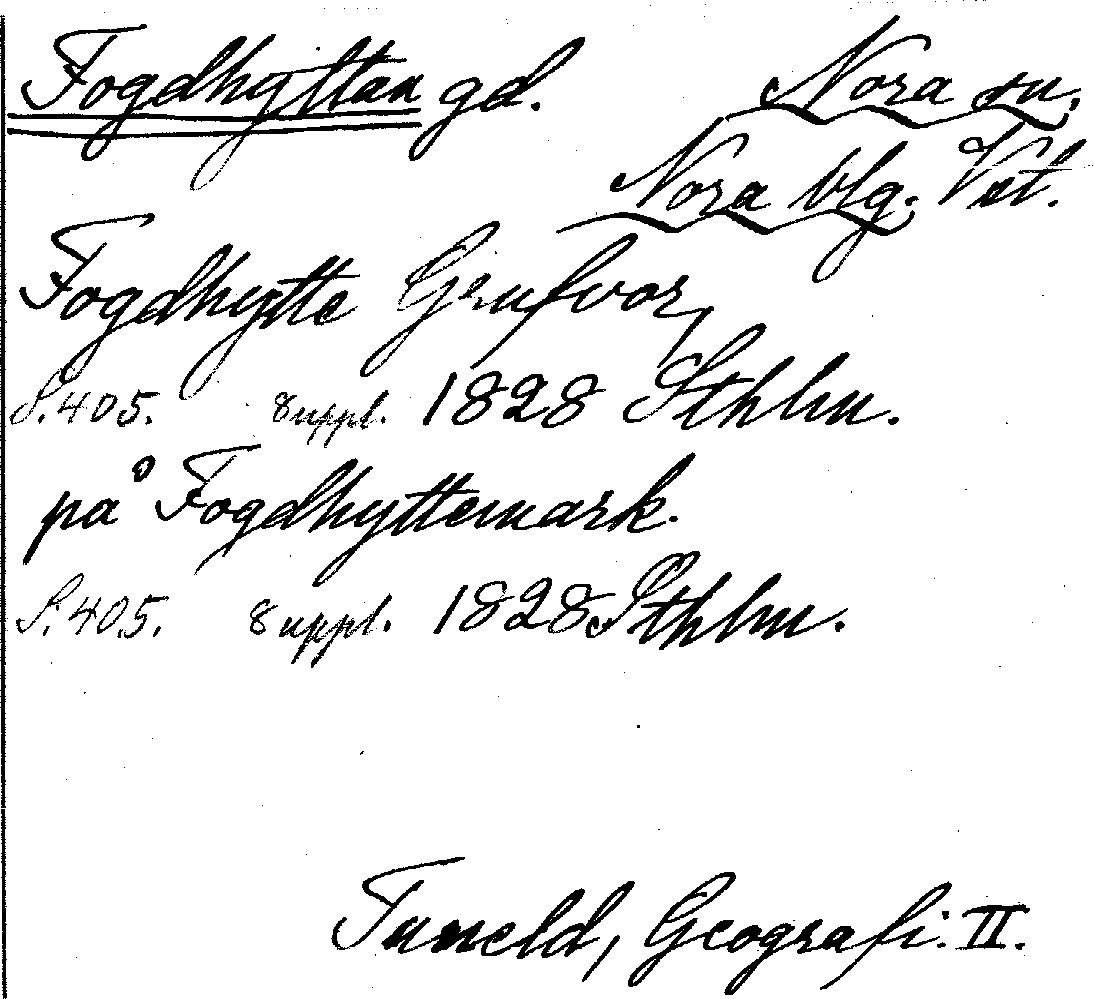 Fogdhyttan gd. Nora sn.
Nora blg. Vst.
Fogdhytte Grufvor,
S. 405. Suppl. 1828 Sthlm.
på Fogdhyttemark.
S. 405. Suppl. 1828 Sthlm.
Tuneld, Geografi. II.